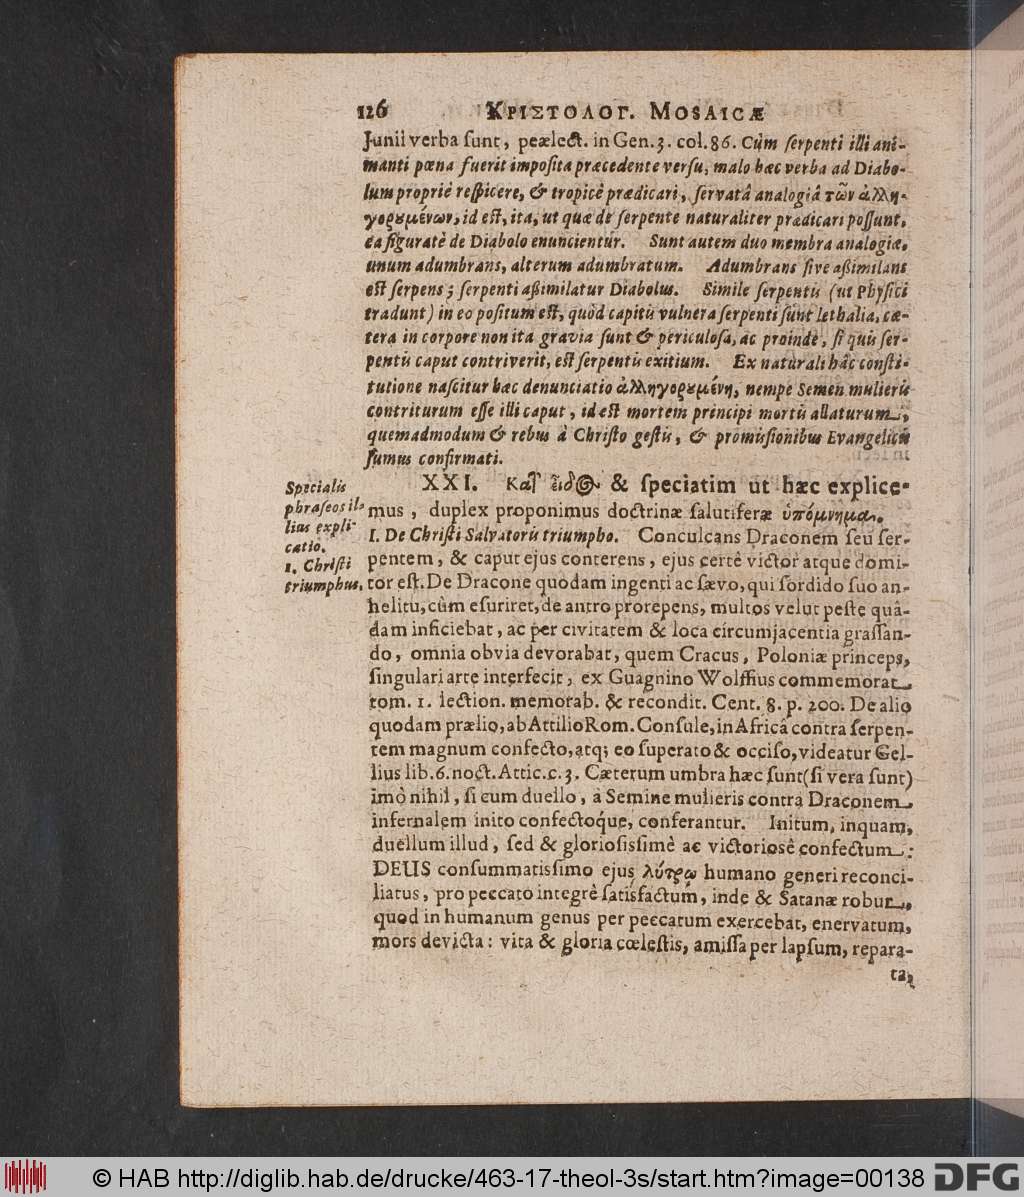 126 ΧΡΙΣΤΟΛΟΓ. MOSAICÆ
Junii verba sunt, peælect. in Gen. 3. col. 86. Cùm serpenti illi ani-
manti pœna fuerit imposita præcedente versu, malo hæc verba ad Diabo-
lum propriè respicere, & tropicè prædicari, servatâ analogiâ τῶν ἀλλη-
γορουμένων, id est, ita, ut quæ de serpente naturaliter prædicari possunt,
ea figuratè de Diabolo enuncientur. Sunt autem duo membra analogiæ,
unum adumbrans, alterum adumbratum. Adumbrans sive assimilans
est serpens; serpenti assimilatur Diabolus. Simile serpentis (ut Physici
tradunt) in eo positum est, quòd capitis vulnera serpenti sunt lethalia, cæ-
tera in corpore non ita gravia sunt & periculosa, ac proinde, si quis ser-
pentis caput contriverit, est serpentis exitium. Ex naturali hâc consti-
tutione nascitur hæc denunciatio ἀλληγορουμένη, nempe Semen mulieris
contriturum esse illi caput, id est mortem principi mortis allaturum,
quemadmodum & rebus à Christo gestis, & promissionibus Evangelicis
sumus confirmati.
XXI. Κατ' εἶδος & speciatim ut hæc explice-
mus, duplex proponimus doctrinæ salutiferæ ὑπόμνημα.
I. De Christi Salvatoris triumpho. Conculcans Draconem seu ser-
pentem, & caput ejus conterens, ejus certè victor atque domi-
tor est. De Dracone quodam ingenti ac sævo, qui sordido suo an-
helitu, cùm esuriret, de antro prorepens, multos velut peste quâ-
dam inficiebat, ac per civitatem & loca circumjacentia grassan-
do, omnia obvia devorabat, quem Cracus, Poloniæ princeps,
singulari arte interfecit, ex Guagnino Wolffius commemorat
tom. 1. lection. memorab. & recondit. Cent. 8. p. 200. De alio
quodam prælio, ab Attilio Rom. Consule, in Africâ contra serpen-
tem magnum confecto, atq; eo superato & occiso, videatur Gel-
lius lib. 6. noct. Attic. c. 3. Cæterum umbra hæc sunt (si vera sunt)
imò nihil, si cum duello, à Semine mulieris contra Draconem
infernalem inito confectoque, conferantur. Initum, inquam,
duellum illud, sed & gloriosissimè ac victoriosè confectum:
DEUS consummatissimo ejus λύτρῳ humano generi reconci-
liatus, pro peccato integrè satisfactum, inde & Satanæ robur,
quod in humanum genus per peccatum exercebat, enervatum,
mors devicta: vita & gloria cœlestis, amissa per lapsum, repara-
ta,
Specialis
phraseos il-
lius expli-
catio.
1. Christi
triumphus.
© HAB http://diglib.hab.de/drucke/463-17-theol-3s/start.htm?image=00138 DFG